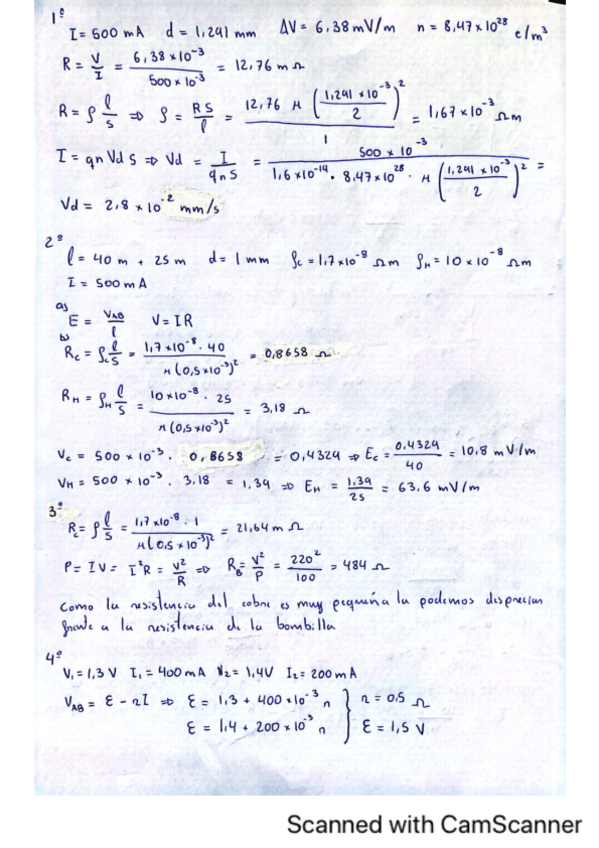 1º
I = 500 mA d = 1,291 mm ΔV = 6,38 mV/m n = 8,47 × 10²⁸ e/m³
R = V/I = 6,38 × 10⁻³ / 500 × 10⁻³ = 12,76 m Ω
R = ρ l/s ⇒ ρ = RS/l = 12,76 π (1,291 × 10⁻³/2)² / 1 = 1,67 × 10⁻³ Ω m
I = qnVd S ⇒ Vd = I/qnS = 500 × 10⁻³ / 1,6 × 10⁻¹⁹ · 8,47 × 10²⁸ · π (1,291 × 10⁻³/2)² =
Vd = 2,8 × 10⁻² mm/s
2º
l = 40 m + 25 m d = 1 mm ρc = 1,7 × 10⁻⁸ Ω m ρH = 10 × 10⁻⁸ Ω m
I = 500 mA
a)
E = VAB/l V = IR
b)
Rc = ρc l/s = 1,7 × 10⁻⁸ · 40 / π (0,5 × 10⁻³)² = 0,8658 Ω
RH = ρH l/s = 10 × 10⁻⁸ · 25 / π (0,5 × 10⁻³)² = 3,18 Ω
Vc = 500 × 10⁻³ · 0,8658 = 0,4329 ⇒ Ec = 0,4329/40 = 10,8 mV/m
VH = 500 × 10⁻³ · 3,18 = 1,39 ⇒ EH = 1,39/25 = 63,6 mV/m
3º
Rc = ρ l/s = 1,7 × 10⁻⁸ · 1 / π (0,5 × 10⁻³)² = 21,64 m Ω
P = IV = I²R = V²/R ⇒ RB = V²/P = 220²/100 = 484 Ω
Como la resistencia del cobre es muy pequeña la podemos despreciar
frente a la resistencia de la bombilla
4º
V₁ = 1,3 V I₁ = 400 mA V₂ = 1,4V I₂ = 200 mA
VAB = ε - rI ⇒ ε = 1,3 + 400 × 10⁻³ r } r = 0,5 Ω
ε = 1,4 + 200 × 10⁻³ r } ε = 1,5 V
Scanned with CamScanner